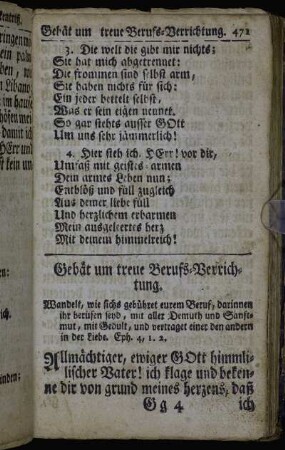 Gebät um treue Berufs-Verrichtung. 471
3. Die welt die gibt mir nichts;
Sie hat mich abgetrennet:
Die frommen sind selbst arm,
Sie haben nichts für sich:
Ein jeder bettelt selbst,
Was er sein eigen nennet.
So gar stehts ausser GOtt
Um uns sehr jämmerlich!
4. Hier steh ich, HErr! vor dir,
Umfaß mit geistes-armen
Dein armes Leben nun;
Entblöß und füll zugleich
Aus deiner liebe füll
Und herzlichem erbarmen
Mein ausgeleertes herz
Mit deinem himmelreich!
Gebät um treue Berufs-Verrich-
tung.
Wandelt, wie sichs gebühret eurem Beruf, darinnen
ihr berufen seyd, mit aller Demuth und Sanft-
mut, mit Gedult, und vertraget einer den andern
in der Liebe. Eph. 4, 1. 2.
Allmächtiger, ewiger GOtt himmli-
lischer Vater! ich klage und beken-
ne dir von grund meines herzens, daß
Gg 4 ich